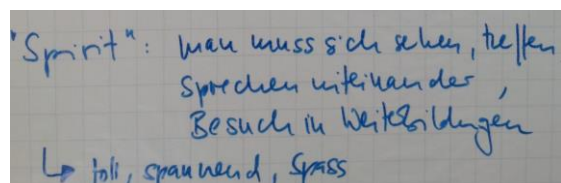 "Spirit": man muss sich sehen, treffen
sprechen miteinander,
Besuch in Weiterbildungen
↳ toll, spannend, Spass